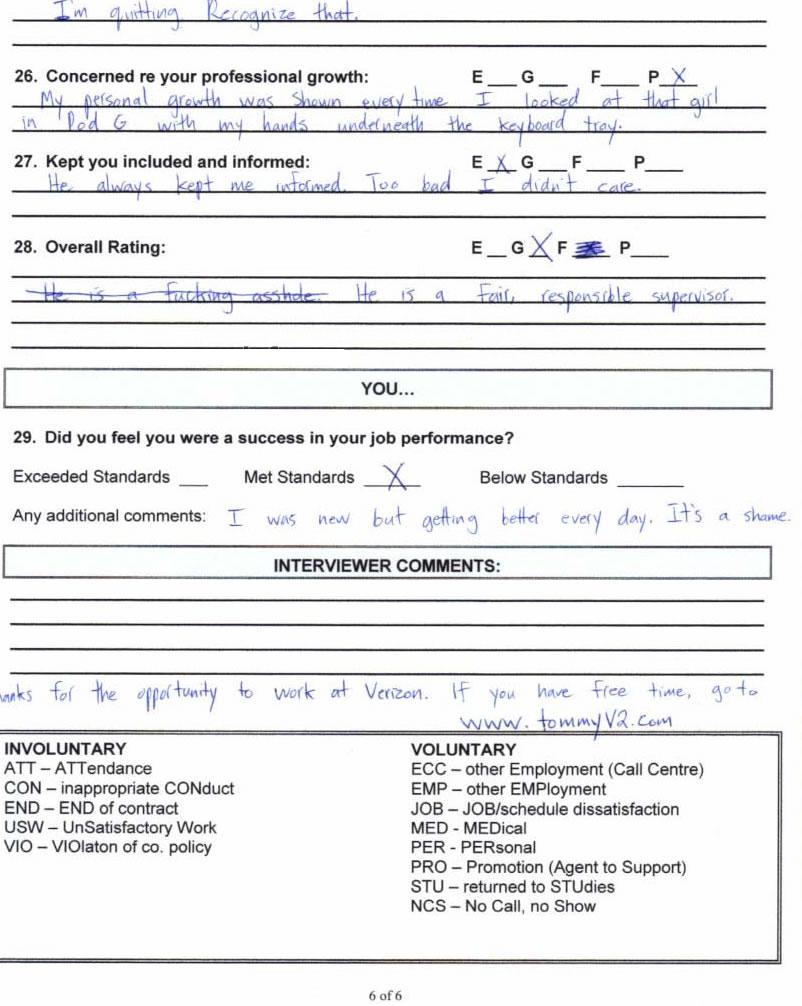 I'm quitting. Recognize that.
26. Concerned re your professional growth: E___ G___ F____ P_X_
My personal growth was shown every time I looked at that girl
in Pod G with my hands underneath the keyboard tray.
27. Kept you included and informed: E_X_ G___ F____ P____
He always kept me informed. Too bad I didn't care.
28. Overall Rating: E __ G X F ___ P____
He is a fucking asshole. He is a fair, responsible supervisor.
YOU...
29. Did you feel you were a success in your job performance?
Exceeded Standards ___ Met Standards __X__ Below Standards _______
Any additional comments: I was new but getting better every day. It's a shame.
INTERVIEWER COMMENTS:
anks for the opportunity to work at Verizon. If you have free time, go to
www.tommyV2.com
INVOLUNTARY
ATT – ATTendance
CON – inappropriate CONduct
END – END of contract
USW – UnSatisfactory Work
VIO – VIOlaton of co. policy
VOLUNTARY
ECC – other Employment (Call Centre)
EMP – other EMPloyment
JOB – JOB/schedule dissatisfaction
MED - MEDical
PER - PERsonal
PRO – Promotion (Agent to Support)
STU – returned to STUdies
NCS – No Call, no Show
6 of 6